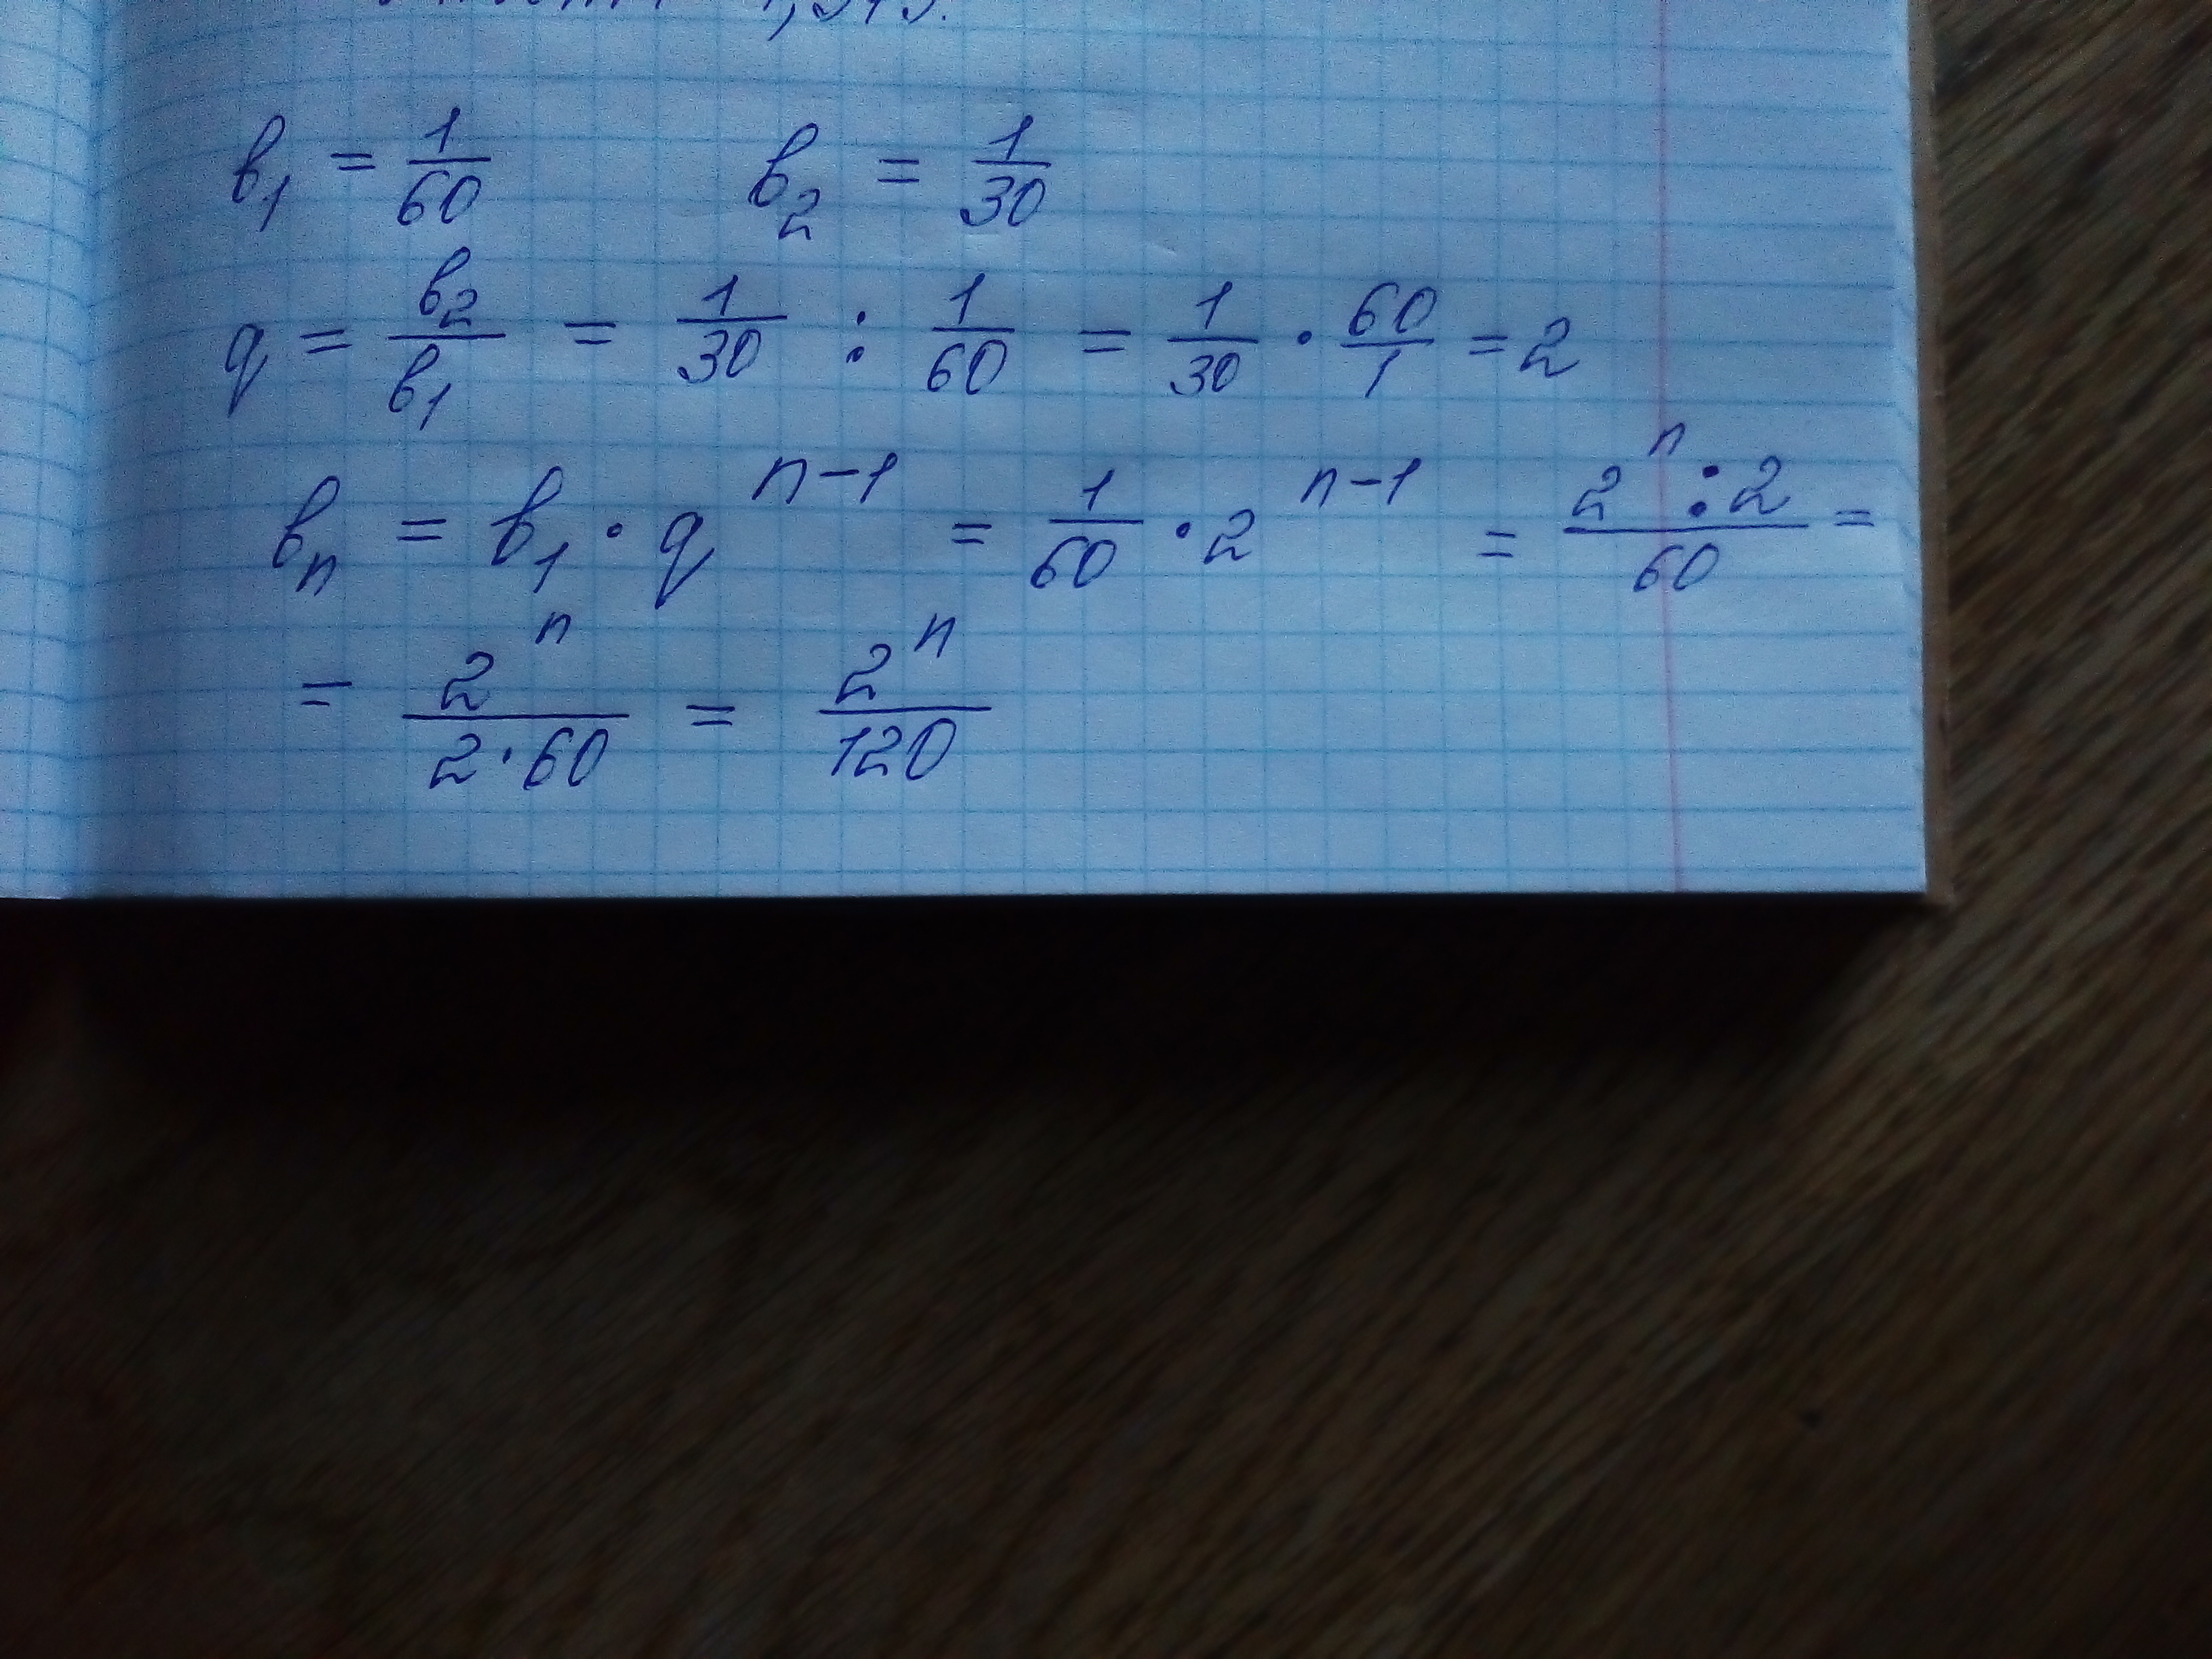 b₁ = 1/60 b₂ = 1/30
q = b₂/b₁ = 1/30 : 1/60 = 1/30 · 60/1 = 2
bₙ = b₁ · qⁿ⁻¹ = 1/60 · 2ⁿ⁻¹ = (2ⁿ : 2)/60 =
= 2ⁿ/(2·60) = 2ⁿ/120